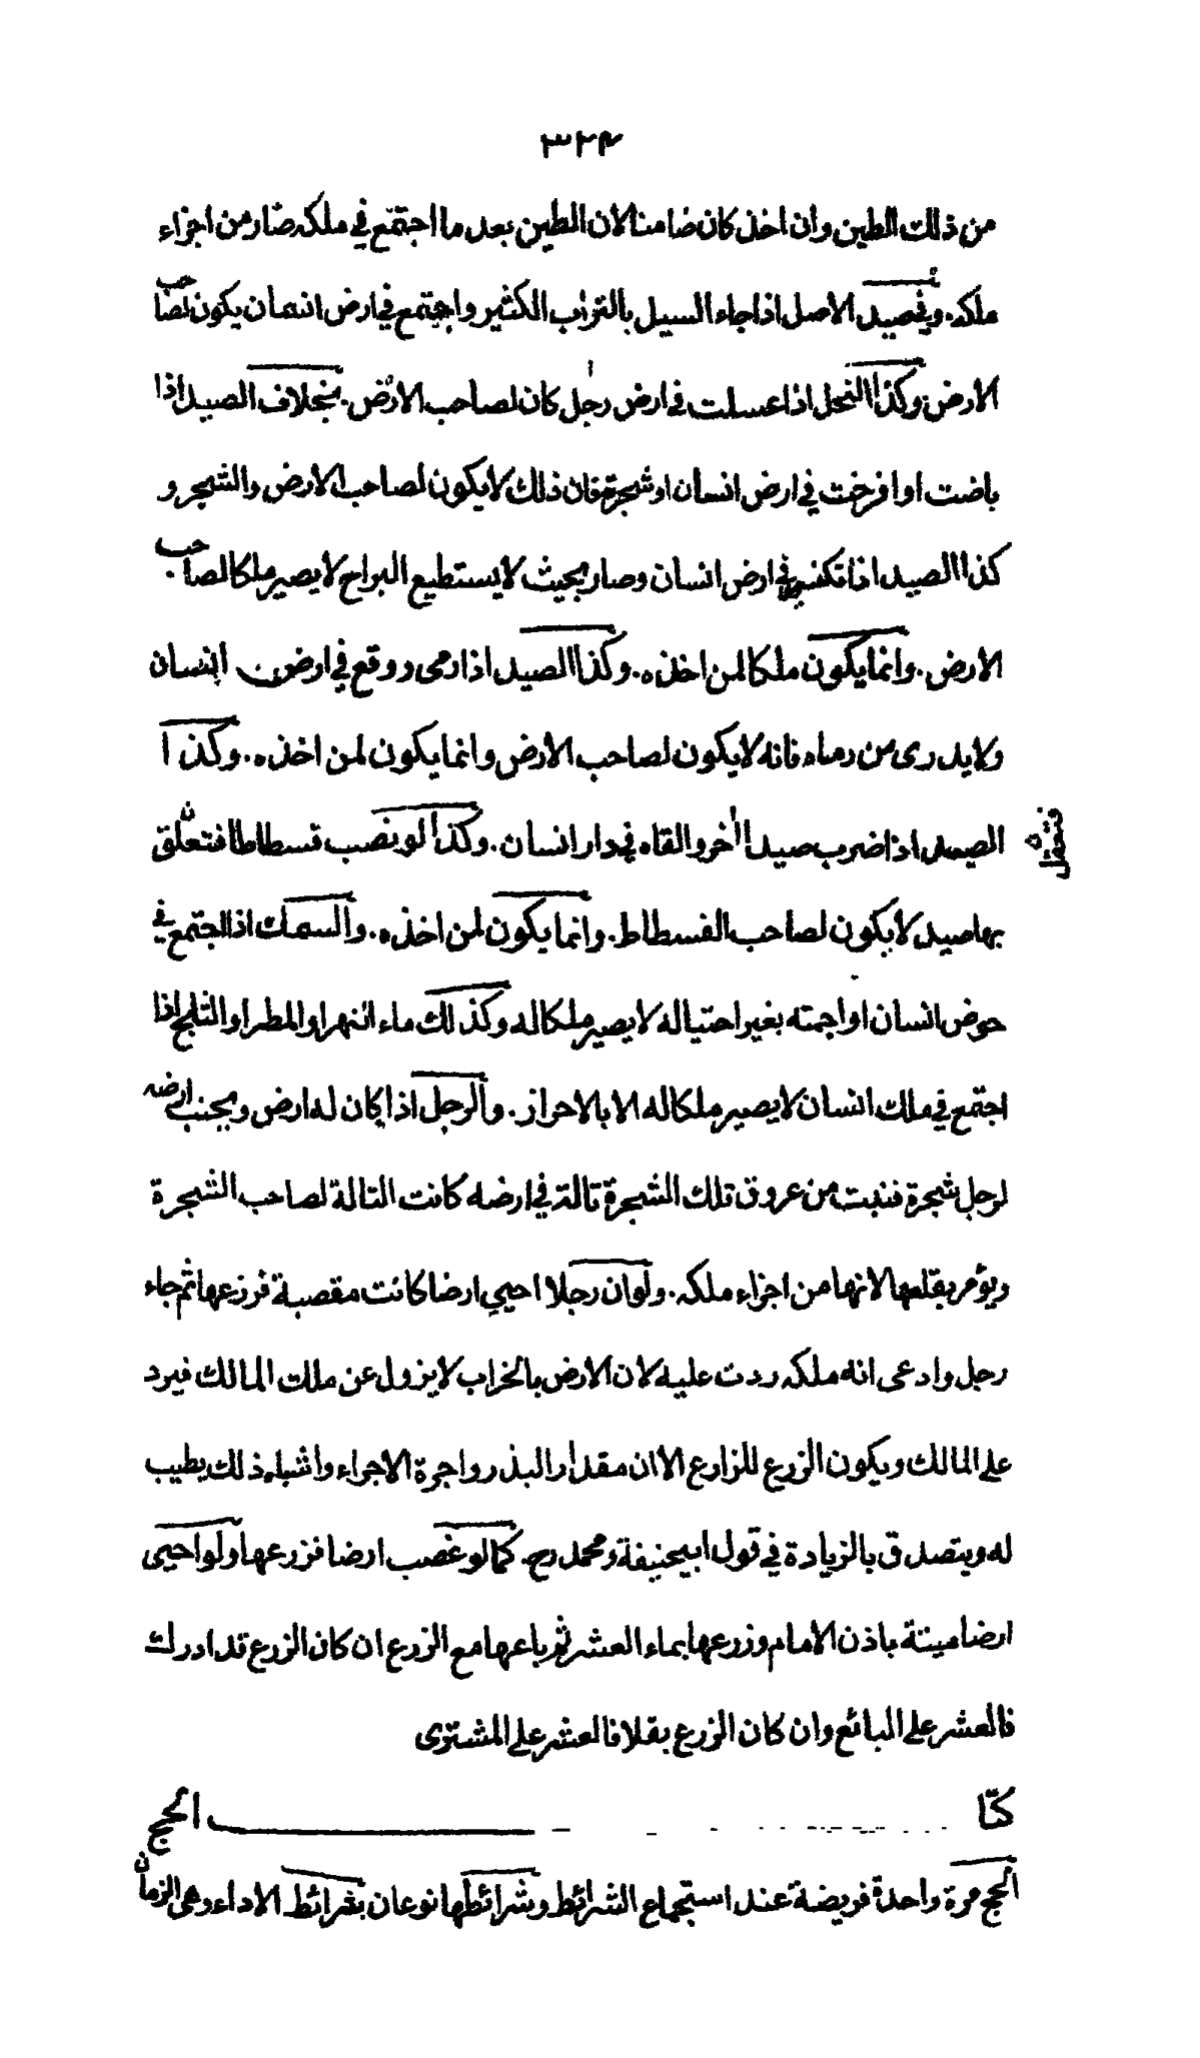 ٣٢٤
من ذلك الطين وان اخذ كان ضامنا لان الطين بعد ما اجتمع في ملكه صار من اجزاء
ملكه. وفي صيد الاصل اذا جاء السيل بالتراب الكثير واجتمع في ارض انسان يكون لصاحب
الارض وكذا النحل اذا عسلت في ارض رجل كان لصاحب الارض. بخلاف الصيد اذا
باضت او افرخت في ارض انسان او شجرة فان ذلك لا يكون لصاحب الارض والشجر و
كذا الصيد اذا تكنس في ارض انسان وصار بحيث لا يستطيع البراح لا يصير ملكا لصاحب
الارض. وانما يكون ملكا لمن اخذه. وكذا الصيد اذا رمى ووقع في ارض انسان
ولا يدرى من رماه فانه لا يكون لصاحب الارض وانما يكون لمن اخذه. وكذا
الصيد اذا ضرب صيدا اخر والقاه في دار انسان. وكذا لو نصب فسطاطا فتعلق
بها صيد لا يكون لصاحب الفسطاط. وانما يكون لمن اخذه. والسمك اذا اجتمع في
حوض انسان او اجمته بغير احتياله لا يصير ملكا له وكذلك ماء النهر او المطر او الثلج اذا
اجتمع في ملك انسان لا يصير ملكا له الا بالاحراز. والرجل اذا كان له ارض وبجنب ارضه
لرجل شجرة فنبت من عروق تلك الشجرة تالة في ارضه كانت التالة لصاحب الشجرة
ويؤمر بقلعها لانها من اجزاء ملكه. ولو ان رجلا احيى ارضا كانت مقصبة فزرعها ثم جاء
رجل وادعى انه ملكه ردت عليه لان الارض بالخراب لا يزول عن ملك المالك فيرد
على المالك ويكون الزرع للزارع الا ان مقدار البذر واجرة الاجراء واشباه ذلك يطيب
له ويتصدق بالزيادة في قول ابيحنيفة ومحمد رح. كما لو غصب ارضا فزرعها ولو احيى
ارضا ميتة باذن الامام وزرعها بماء العشر ثم باعها مع الزرع ان كان الزرع قد ادرك
فالعشر على البائع وان كان الزرع بقلا فالعشر على المشترى
كتاب الحج
الحج مرة واحدة فريضة عند استجماع الشرائط وشرائطها نوعان بشرائط الاداء وهى الزمان